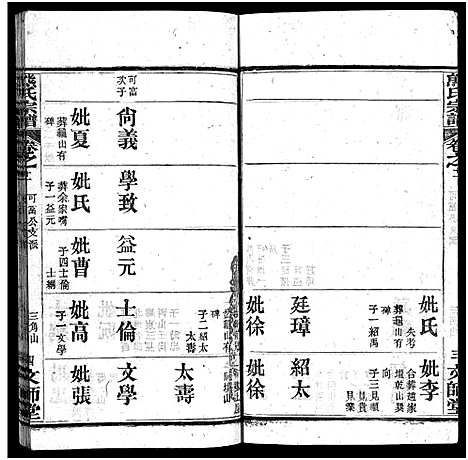 熊氏宗譜
卷之二
三
文師堂
妣氏
失考
葬蘊山有
碑
子一紹禹
妣李
合葬趙家
壋乾山巽
向
子三見順
見貴
見業
廷璋
紹太
妣徐
妣徐
可富
次子
尙義
學致
益元
士倫
文學
太壽
妣夏
葬蘊山有
碑
子一
妣氏
葬余家嘴
子一益元
妣曹
子四士倫
士綱
妣高
子一文學
妣張
子二紹太
太壽
熊氏宗譜
卷之二
可富公支派
三角山
四
文師堂